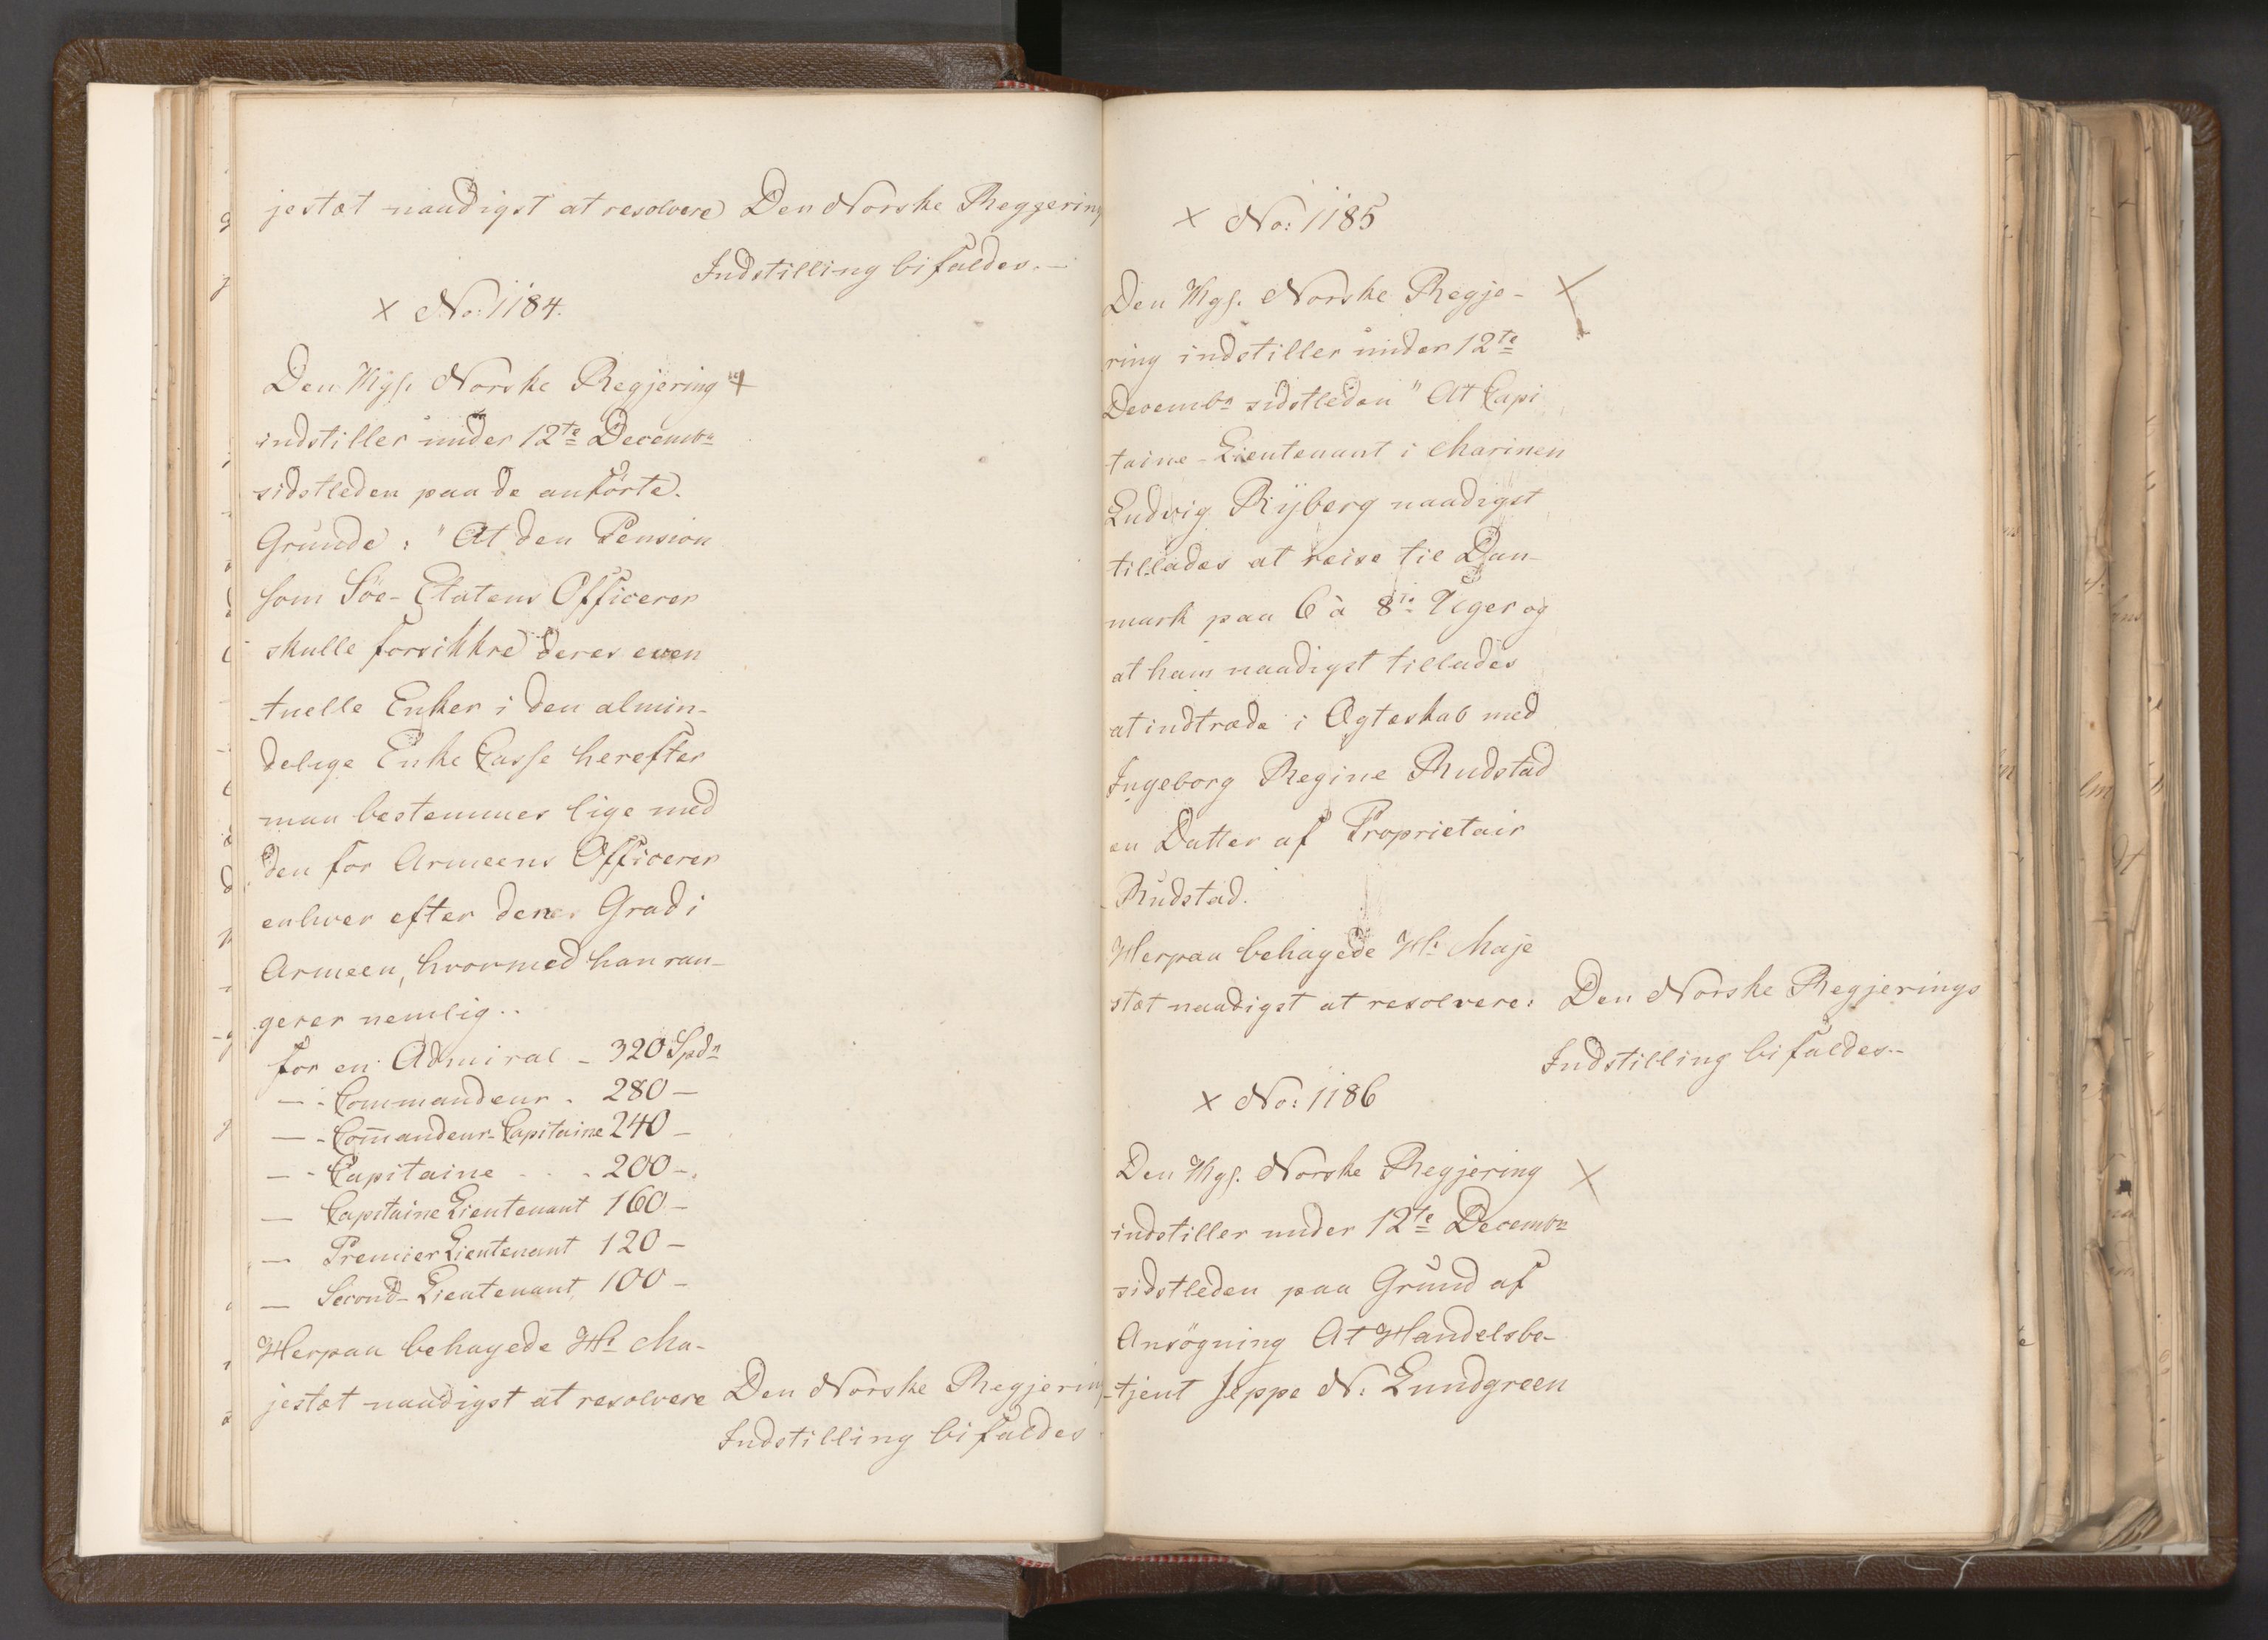 jestæt naadigst at resolvere Den Norske Regjering
Indstilling bifaldes.-
x No: 1184.
Den Kgs. Norske Regjering +
indstiller under 12te Decembr
sidstleden paa de anførte
Grunde: "At den Pension
som Söe-Etatens Officerer
skulle forsikkre deres even
tuelle Enker i den almin-
delige Enke Casse herefter
maa bestemmes lige med
den for Armeens Officerer
enhver efter deres Grad i
Armeen, hvormed han ran-
gerer nemlig..
for en Admiral - 320 Spdr
— - Commandeur - 280 —
— - Com̄andeur-Capitaine 240 —
— - Capitaine - - 200 —
— Capitaine Lieutenant 160 —
— Premier Lieutenant 120 —
— Second-Lieutenant 100 —
Herpaa behagede Hs Ma-
jestæt naadigst at resolvere Den Norske Regjering
Indstilling bifaldes
x No: 1185
Den Kgs. Norske Regje- x
ring indstiller under 12te
Decembr sidstleden "At Capi
taine-Lieutenant i Marinen
Ludvig Rÿberg naadigst
tillades at reise til Dan-
mark paa 6 à 8te Uger og
at ham naadigst tillades
at indtræde i Ægteskab med
Ingeborg Regine Rudstad
en Datter af Proprietair
Rudstad.
Herpaa behagede Hs Maje
stæt naadigst at resolvere: Den Norske Regjerings
Indstilling bifaldes.-
x No: 1186
Den Kgs. Norske Regjering x
indstiller under 12te Decembr
sidstleden paa Grund af
Ansögning At Handelsbe-
-tjent Jeppe N. Lundgreen